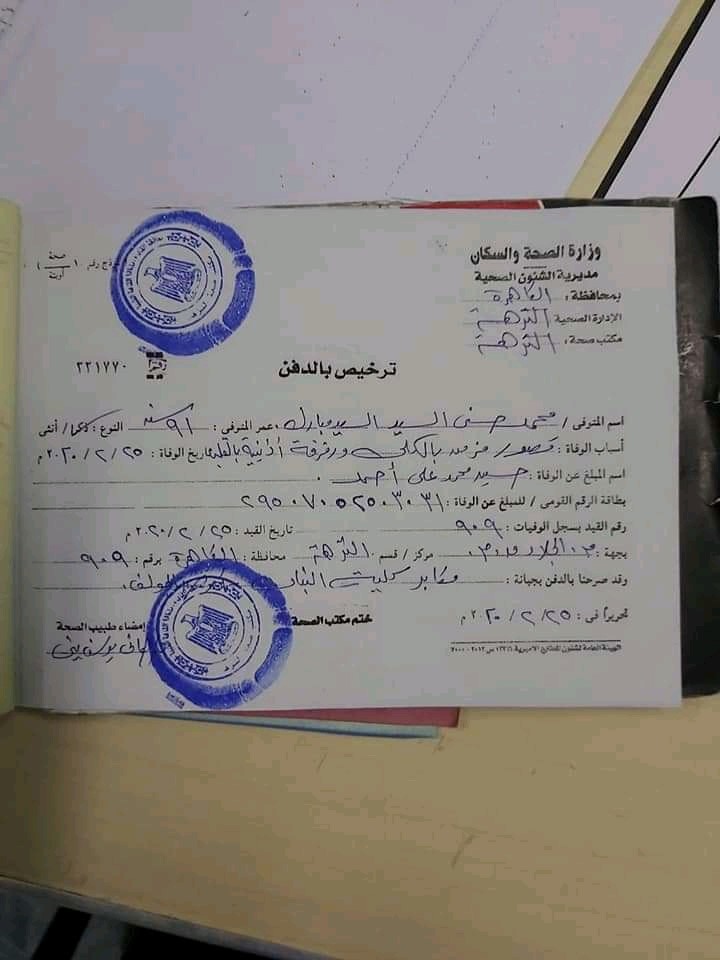 وزارة الصحة والسكان
مديرية الشئون الصحية
بمحافظة : القاهرة
الإدارة الصحية النزهة
مكتب صحة : النزهة
نموذج رقم ( ١ صحة / أوبئة )
رقم ٢٢١٧٧٠
ترخيص بالدفن
اسم المتوفى / محمد حسنى السيد السيد مبارك عمر المتوفى : ٩١ سنة النوع : ذكر / أنثى
أسباب الوفاة : قصور مزمن بالكلى ورفرفة أذنية بالقلب تاريخ الوفاة : ٢٥ / ٢ / ٢٠٢٠ م
اسم المبلغ عن الوفاة : سيد محمد على أحمد
بطاقة الرقم القومى / للمبلغ عن الوفاة : ٢٩٥٠٧٠٥٢٥٠٣٠٣١
رقم القيد بسجل الوفيات : ٩٠٩ تاريخ القيد : ٢٥ / ٢ / ٢٠٢٠ م
بجهة : الجلاء مركز / قسم النزهة محافظة : القاهرة برقم : ٩٠٩
وقد صرحنا بالدفن بجبانة : مقابر
تحريراً فى : ٢٥ / ٢ / ٢٠٢٠ م
ختم مكتب الصحة
إمضاء طبيب الصحة
الهيئة العامة لشئون المطابع الأميرية